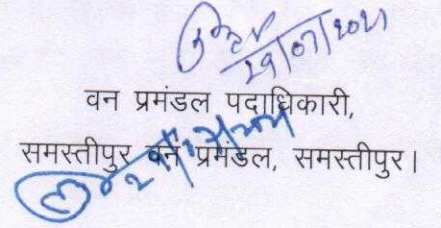 29/07/2021
वन प्रमंडल पदाधिकारी,
समस्तीपुर वन प्रमंडल, समस्तीपुर।